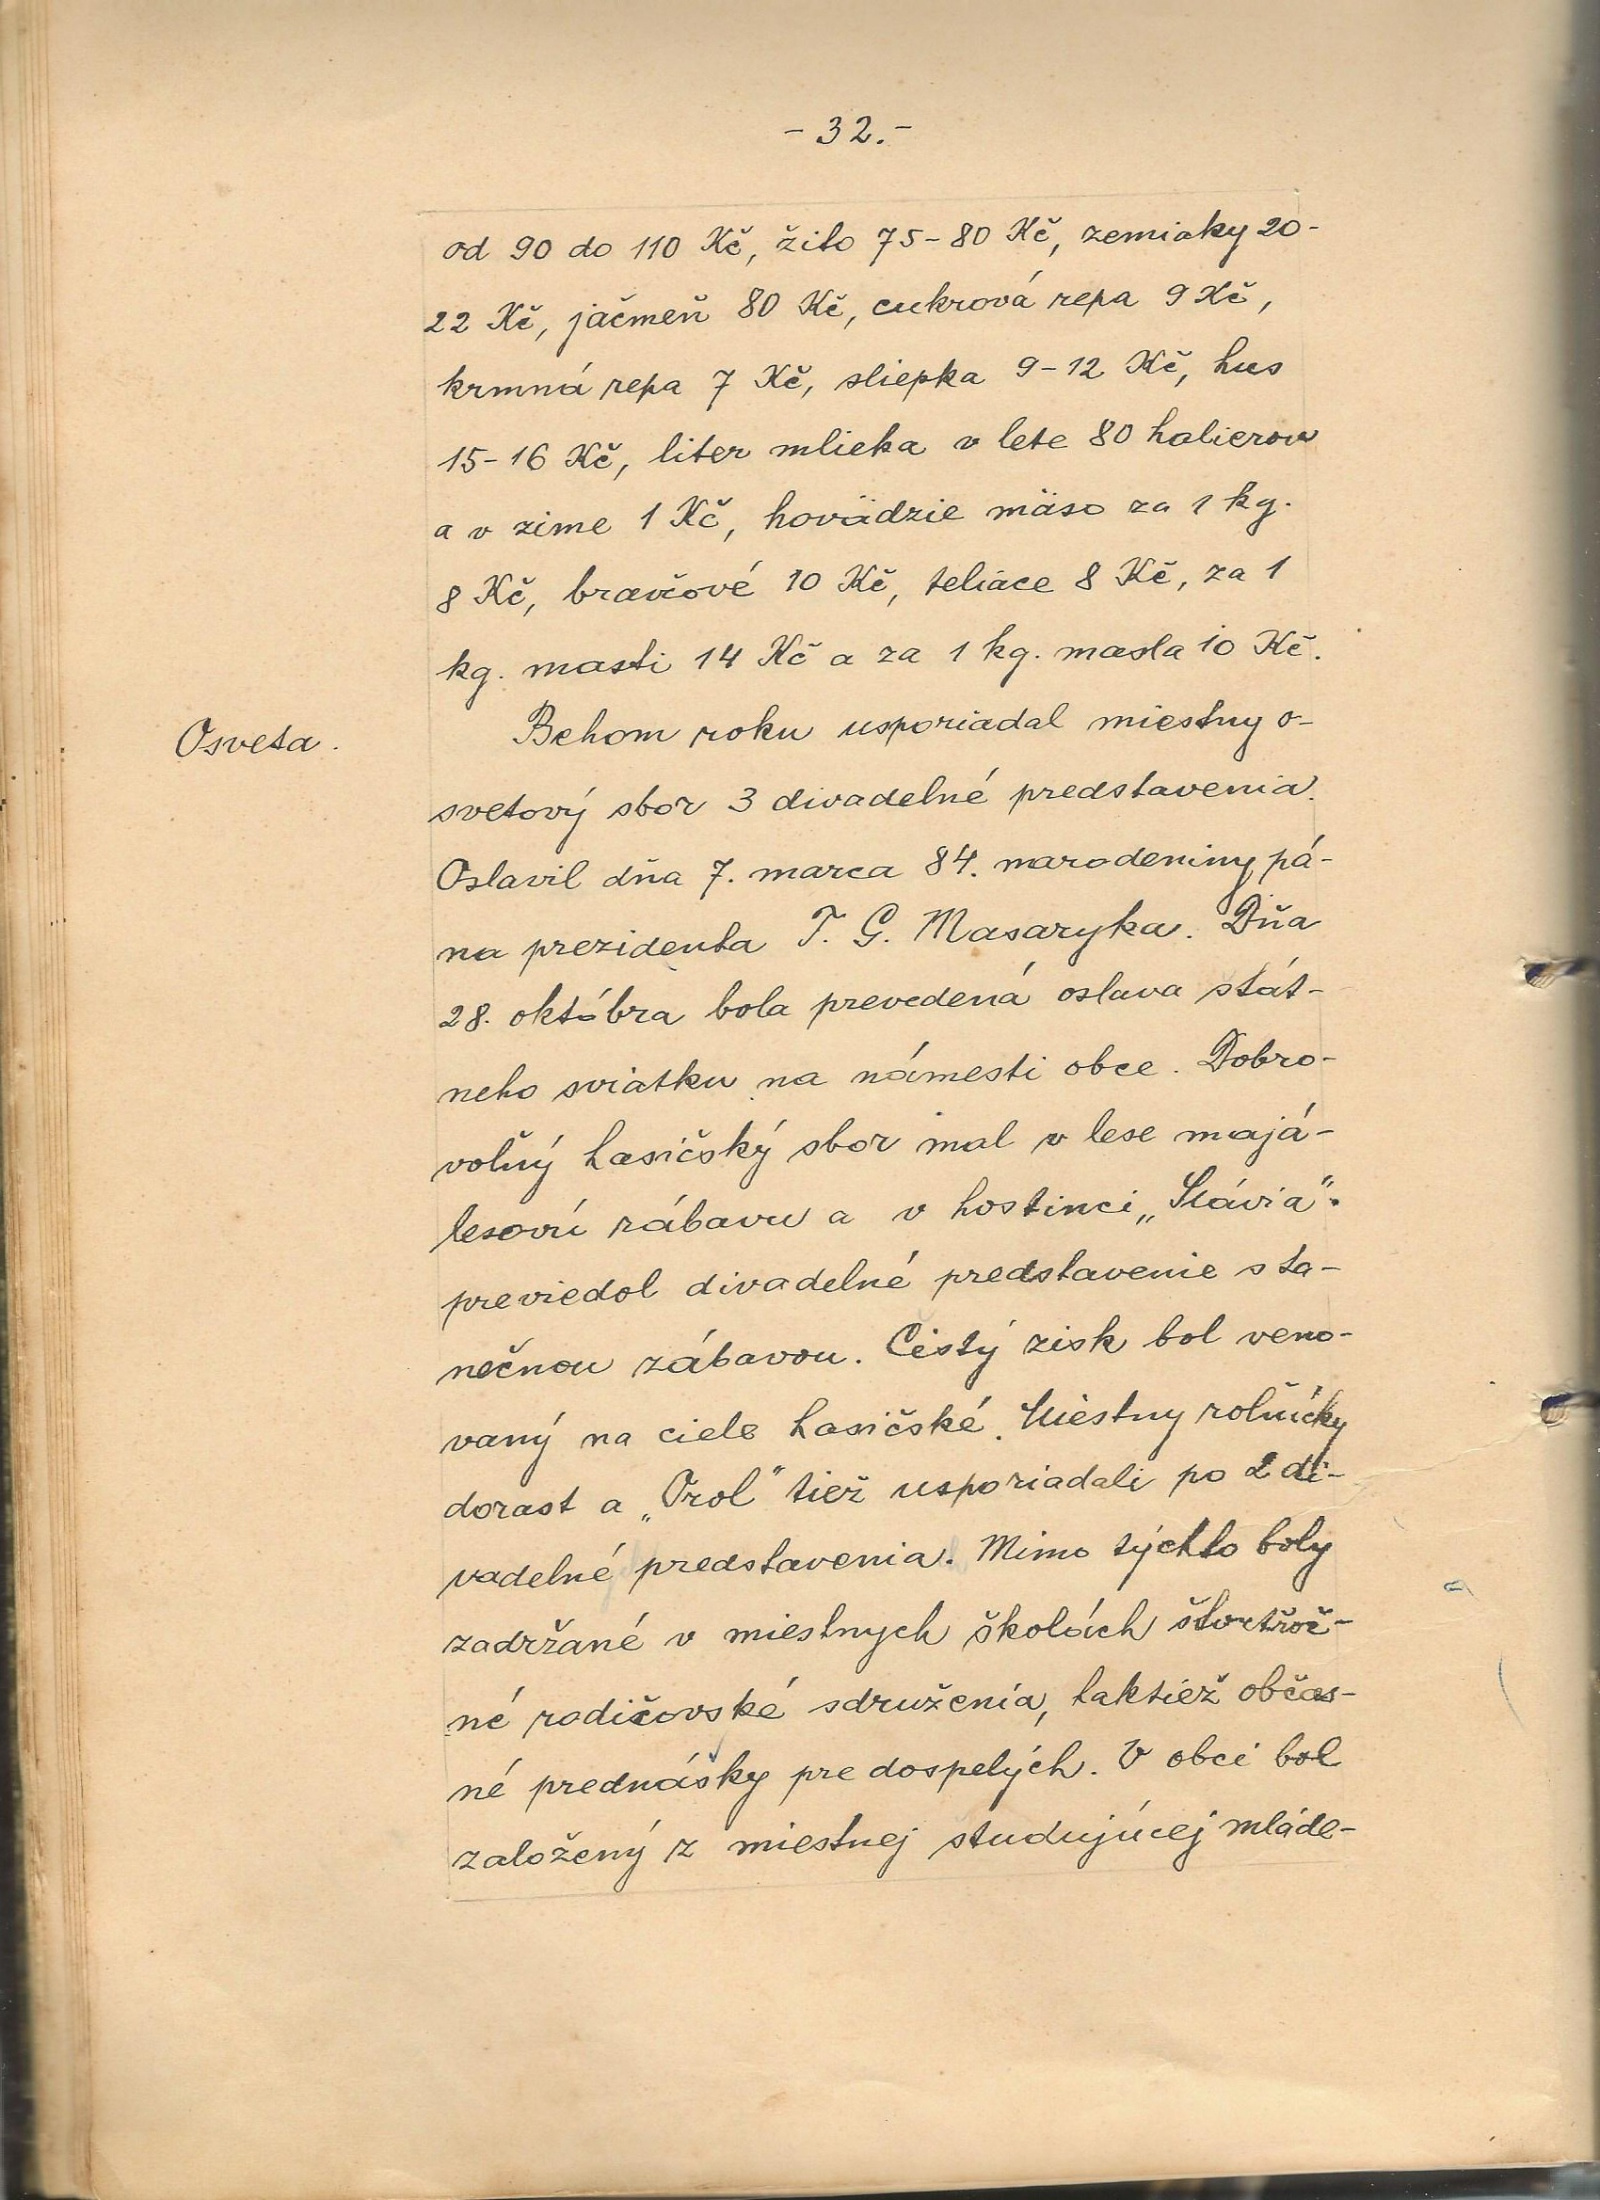 - 32. -
od 90 do 110 Kč, žito 75-80 Kč, zemiaky 20-
22 Kč, jačmeň 80 Kč, cukrová repa 9 Kč,
krmná repa 7 Kč, sliepka 9-12 Kč, hus
15-16 Kč, liter mlieka v lete 80 halierov
a v zime 1 Kč, hovädzie mäso za 1 kg.
8 Kč, bravčové 10 Kč, teliace 8 Kč, za 1
kg. masti 14 Kč a za 1 kg. masla 10 Kč.
Osveta.
Behom roku usporiadal miestny o-
svetový sbor 3 divadelné predstavenia.
Oslavil dňa 7. marca 84. narodeniny pá-
na prezidenta T. G. Masaryka. Dňa
28. októbra bola prevedená oslava štát-
neho sviatku na námesti obce. Dobro-
voľný hasičský sbor mal v lese majá-
lesovú zábavu a v hostinci „Slávia".
previedol divadelné predstavenie s ta-
nečnou zábavou. Čistý zisk bol veno-
vaný na ciele hasičské. Miestny roľnícky
dorast a „Orol" tiež usporiadali po 2 di-
vadelné predstavenia. Mimo týchto boly
zadržané v miestnych školách štvrťroč-
né rodičovské sdruženia, taktiež občas-
né prednášky pre dospelých. V obci bol
založený z miestnej študujúcej mláde-